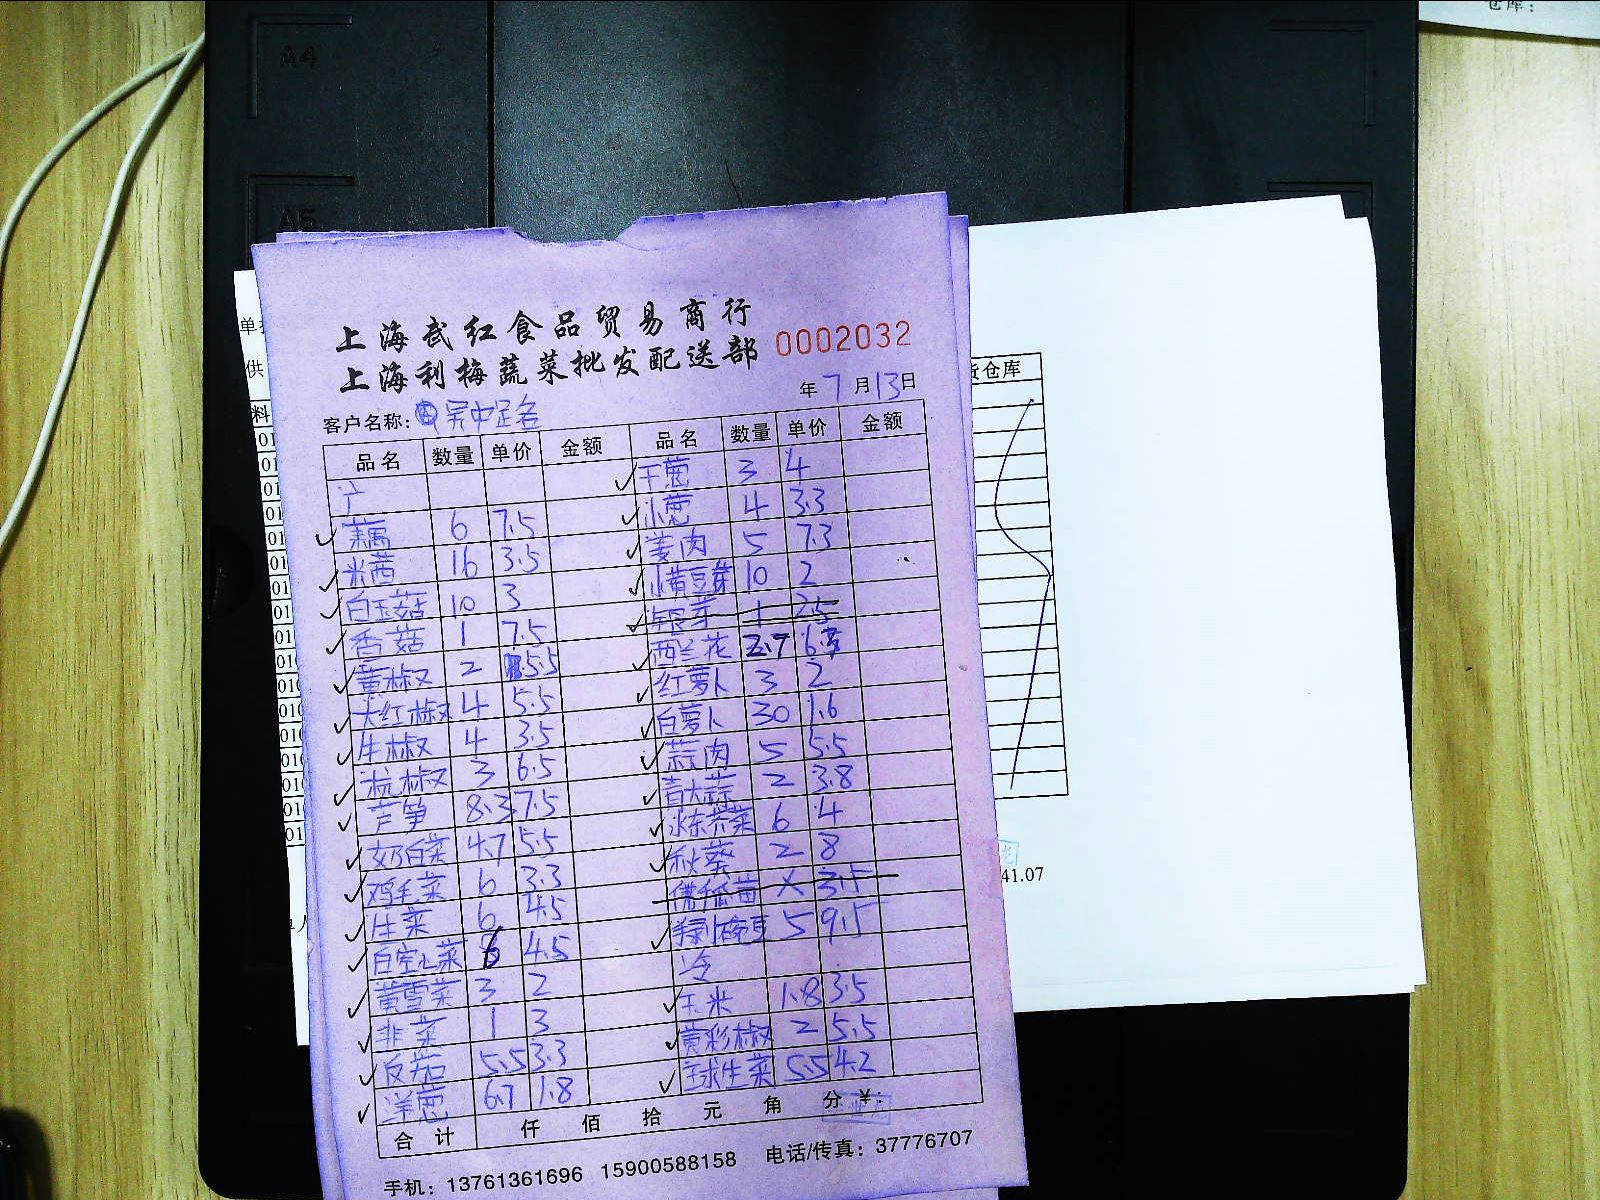 仓库：
A4
A5
上海武红食品贸易商行
上海利梅蔬菜批发配送部
0002032
年 7 月 13 日
客户名称：吴中足名
品名 数量 单价 金额
藕 6 7.5
米茜 16 3.5
白玉菇 10 3
香菇 1 7.5
黄椒 2 5.5
大红椒 4 5.5
牛椒 4 3.5
杭椒 3 6.5
芦笋 8.3 7.5
奶白菜 4.7 5.5
鸡毛菜 6 3.3
生菜 6 4.5
白空心菜 6 4.5
黄雪菜 3 2
韭菜 1 3
反茄 5.5 3.3
洋葱 6.7 1.8
品名 数量 单价 金额
干葱 3 4
小葱 4 3.3
姜肉 5 7.3
小黄豆芽 10 2
银芽 1 2.5
西兰花 2.7 6
红萝卜 3 2
白萝卜 30 1.6
蒜肉 5 5.5
青大蒜 2 3.8
水东芥菜 6 4
秋葵 2 8
3.5
5 9.5
冷
玉米 1.8 3.5
黄彩椒 2 5.5
球生菜 5.5 4.2
合计 仟 佰 拾 元 角 分 ¥：
手机：13761361696 15900588158 电话/传真：37776707
单
供
料
货仓库
41.07